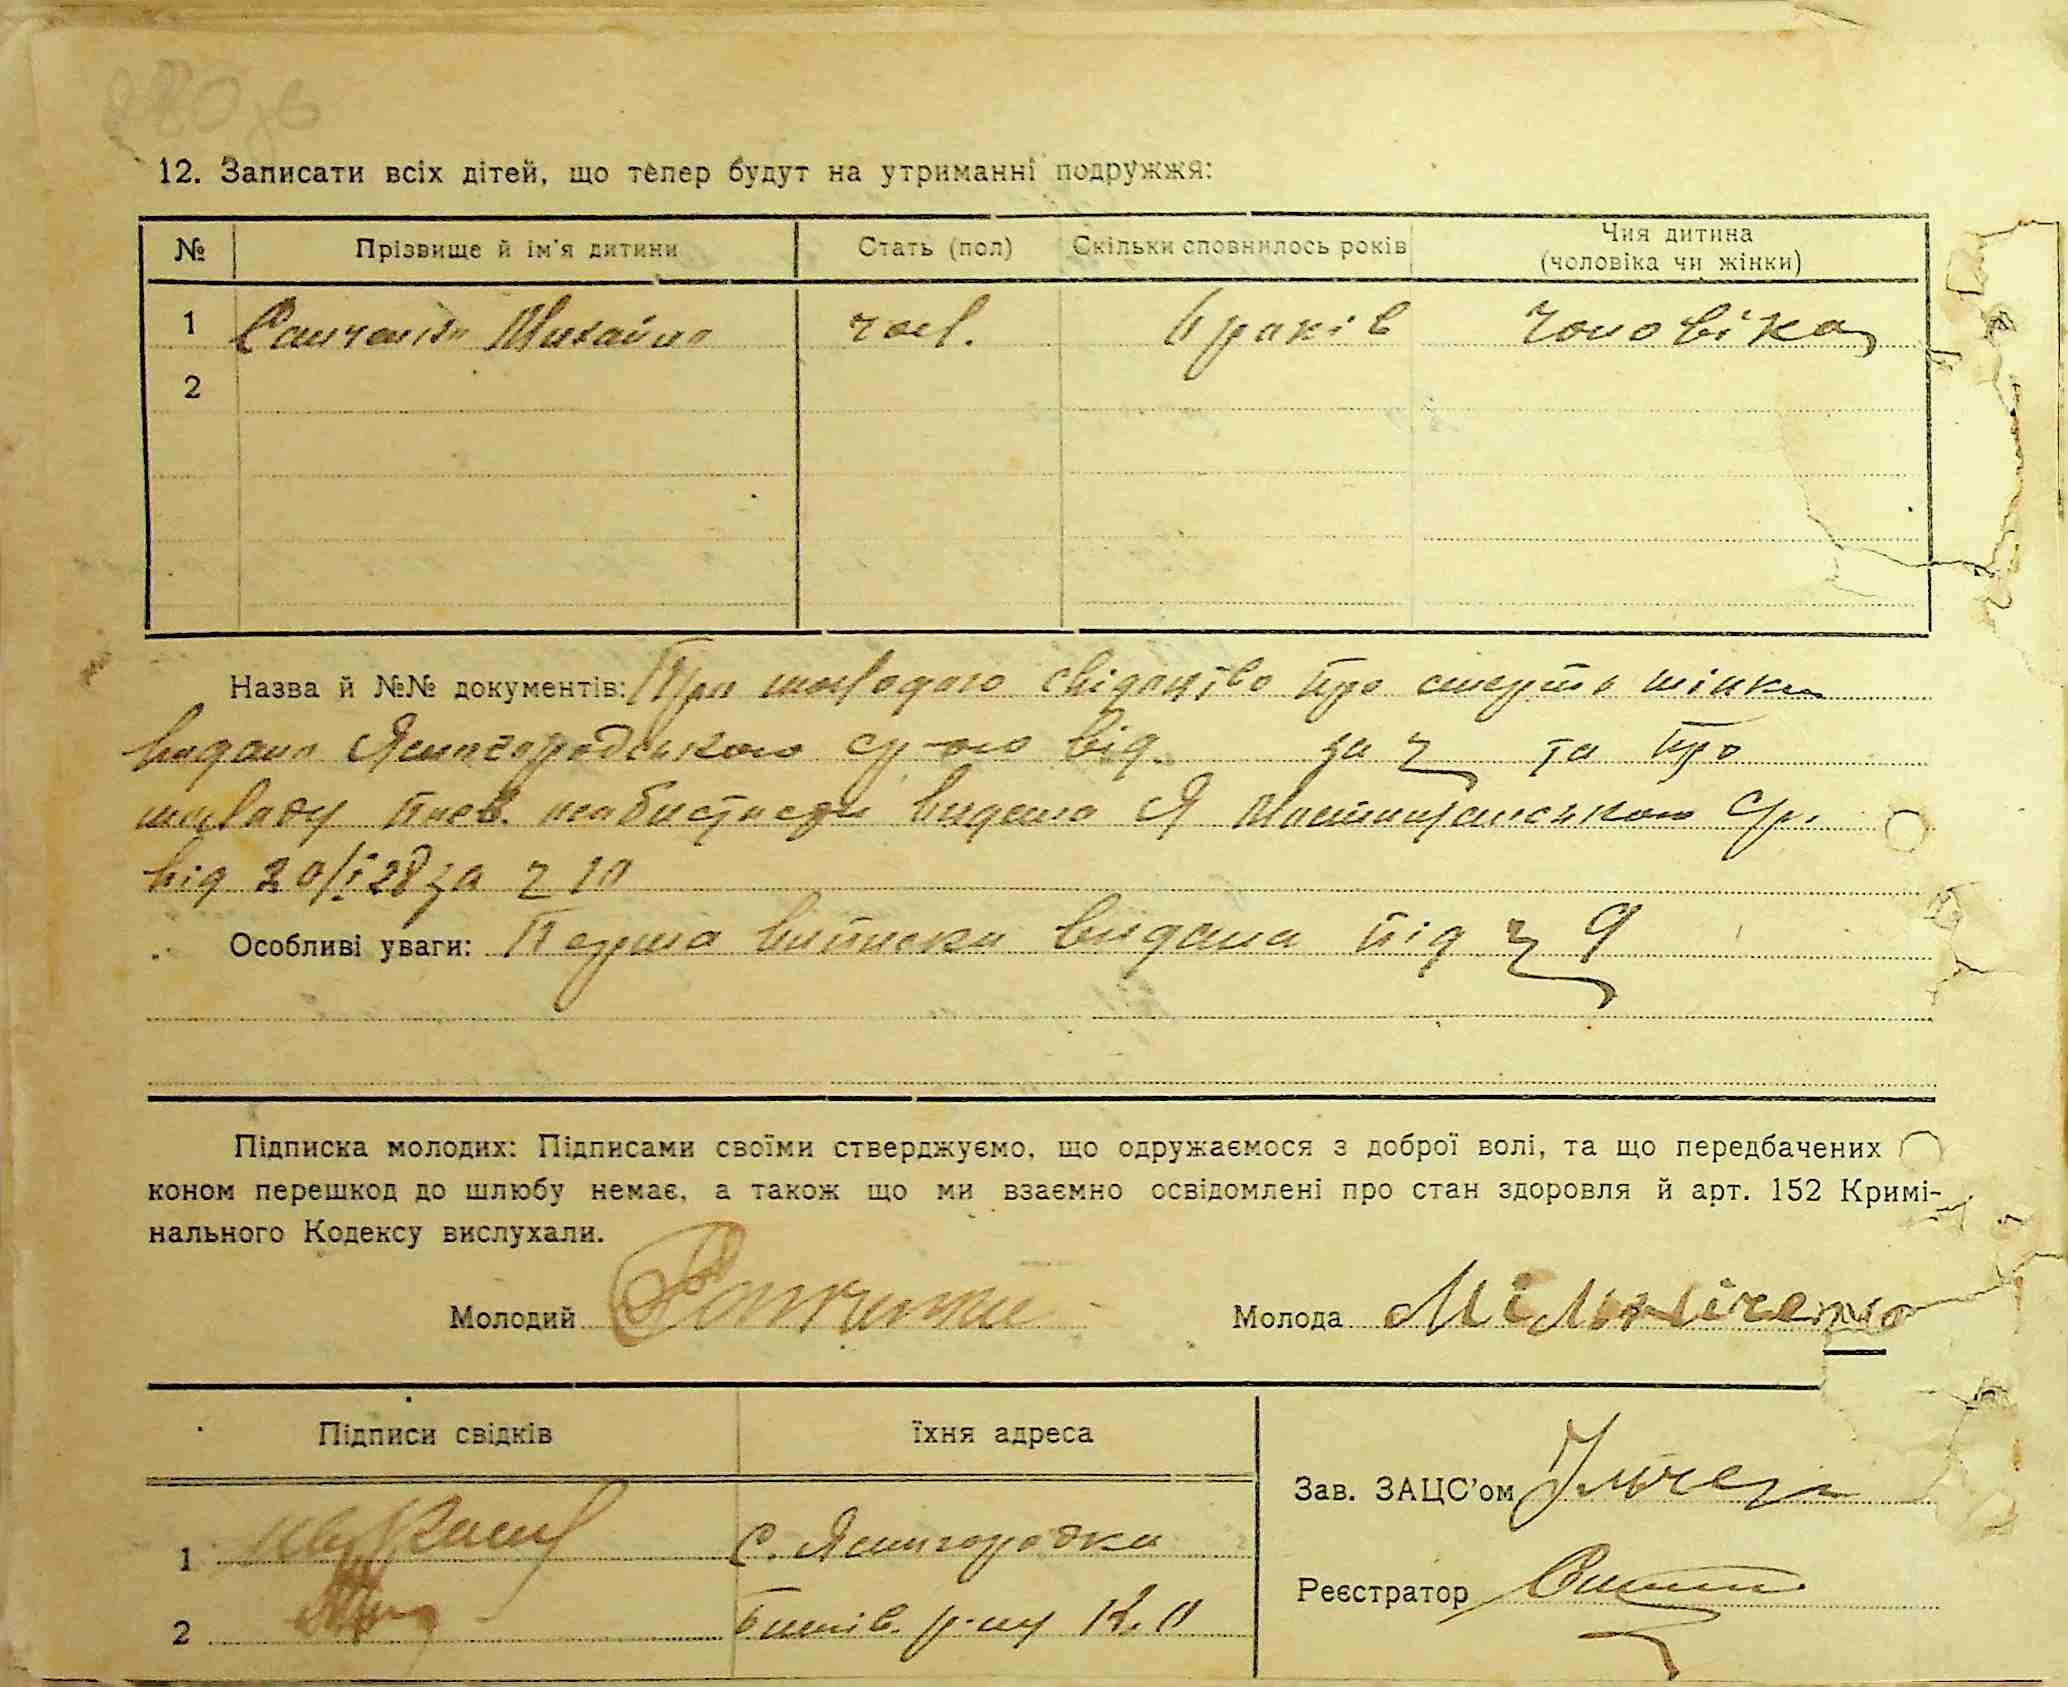 12. Записати всіх дітей, що тепер будут на утриманні подружжя:
№ Прізвище й ім'я дитини Стать (пол) Скільки сповнилось років Чия дитина (чоловіка чи жінки)
1 Михайло чол. 6 років чоловіка
2
Назва й №№ документів: Про молодого свідоцтво про смерть жінки
видано Ясногородською ср-ою від за ч та про
молоду посв. особистости видано Мостищанською ср.
від 20/I 28 за ч 10
Особливі уваги: Перша виписка видана під ч 9
Підписка молодих: Підписами своїми стверджуємо, що одружаємося з доброї волі, та що передбачених
коном перешкод до шлюбу немає, а також що ми взаємно освідомлені про стан здоровля й арт. 152 Кримі-
нального Кодексу вислухали.
Молодий Молода
Підписи свідків їхня адреса
Зав. ЗАЦС'ом
1 с. Ясногородка
Реєстратор
2 р-ну К. О